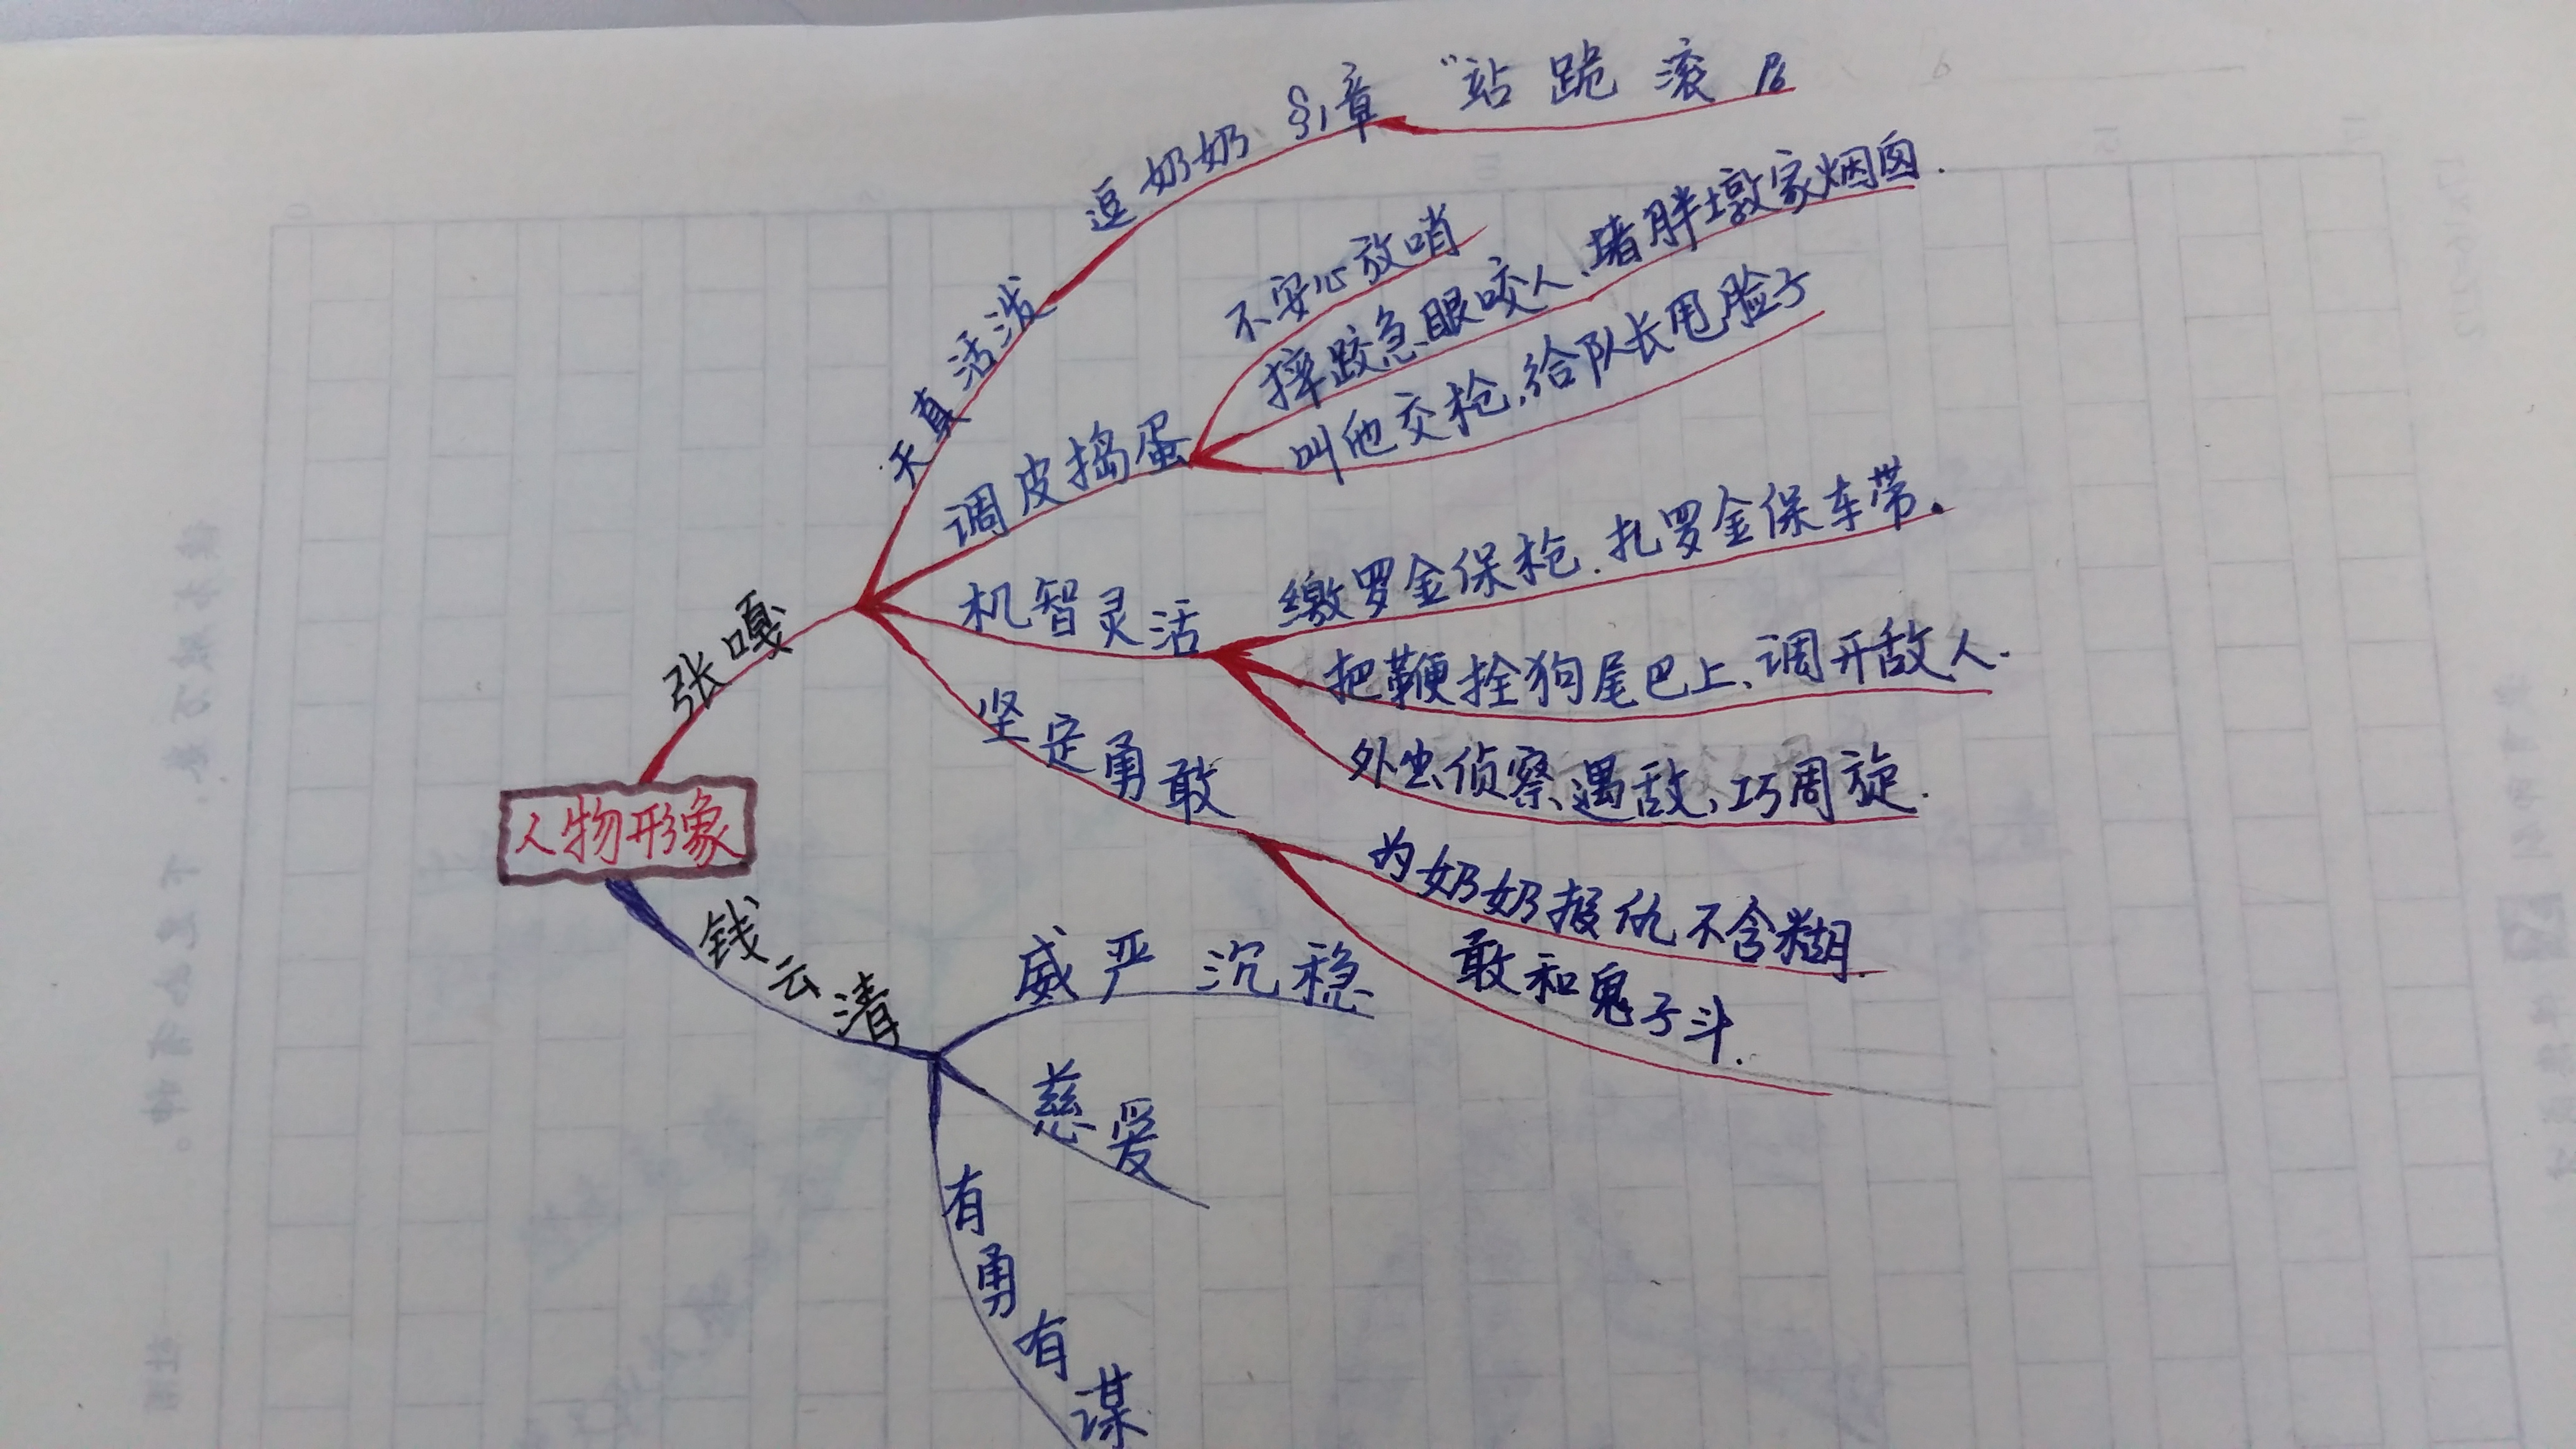 人物形象
张嘎
天真活泼
逗奶奶 §1章 "站 跪 滚
调皮捣蛋
不安心放哨
摔跤急眼咬人、堵胖墩家烟囱.
叫他交枪,给队长甩脸子
机智灵活
缴罗金保枪.扎罗金保车带.
把鞭拴狗尾巴上、调开敌人.
外出侦察遇敌,巧周旋.
坚定勇敢
为奶奶报仇不含糊.
敢和鬼子斗.
钱云清
威严沉稳
慈爱
有勇有谋